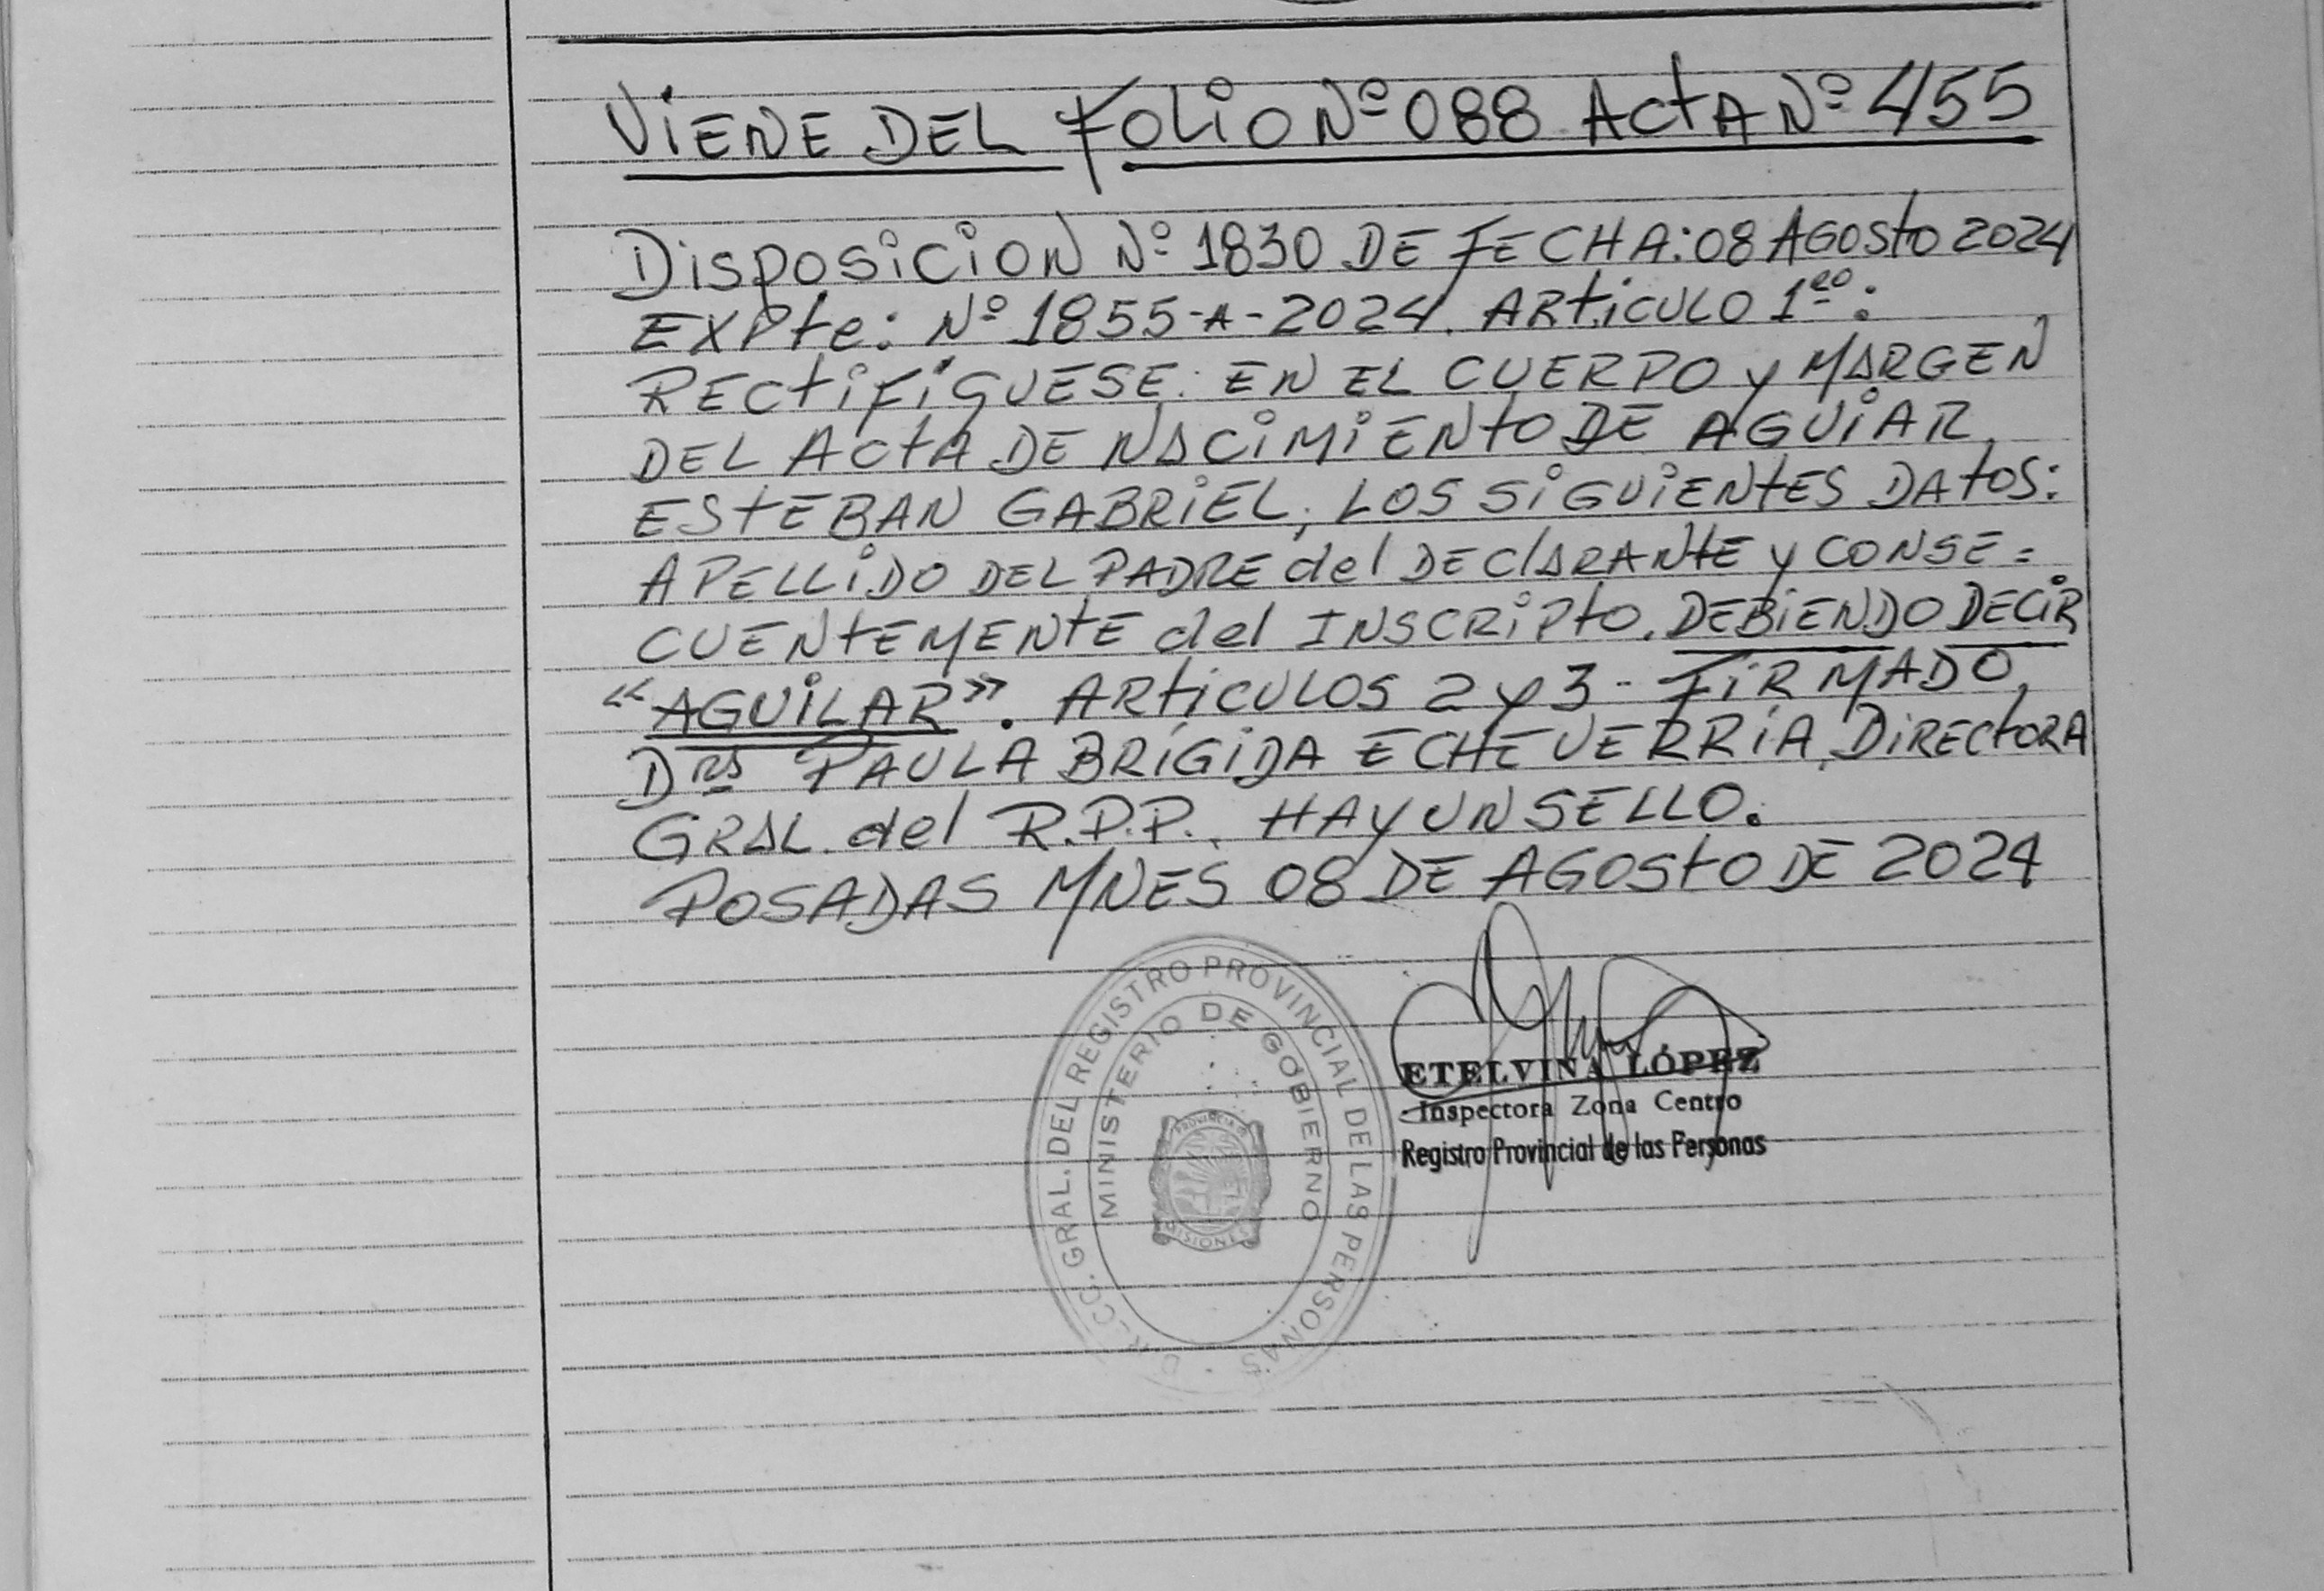 VIENE DEL FOLIO Nº 088 ACTA Nº 455
DISPOSICION Nº 1830 DE FECHA: 08 AGOSTO 2024
EXPte: Nº 1855-A-2024. ARTICULO 1ero:
RECTIFIQUESE: EN EL CUERPO y MARGEN
DEL ACTA DE NACIMIENTO DE AGUIAR,
ESTEBAN GABRIEL, LOS SIGUIENTES DATOS:
APELLIDO DEL PADRE del DEClARANTE y CONSE=
CUENTEMENTE del INSCRIPTO, DEBIENDO DECIR
"AGUILAR". ARTICULOS 2 y 3 - FIRMADO,
Dra PAULA BRÍGIDA ECHEVERRÍA, DIRECTORA
GRAL. del R.P.P., HAY UN SELLO.
POSADAS MNES 08 DE AGOSTO DE 2024
DIRECC. GRAL. DEL REGISTRO PROVINCIAL DE LAS PERSONAS
MINISTERIO DE GOBIERNO
PROVINCIA D
MISIONES
ETELVINA LÓPEZ
Inspectora Zona Centro
Registro Provincial de las Personas